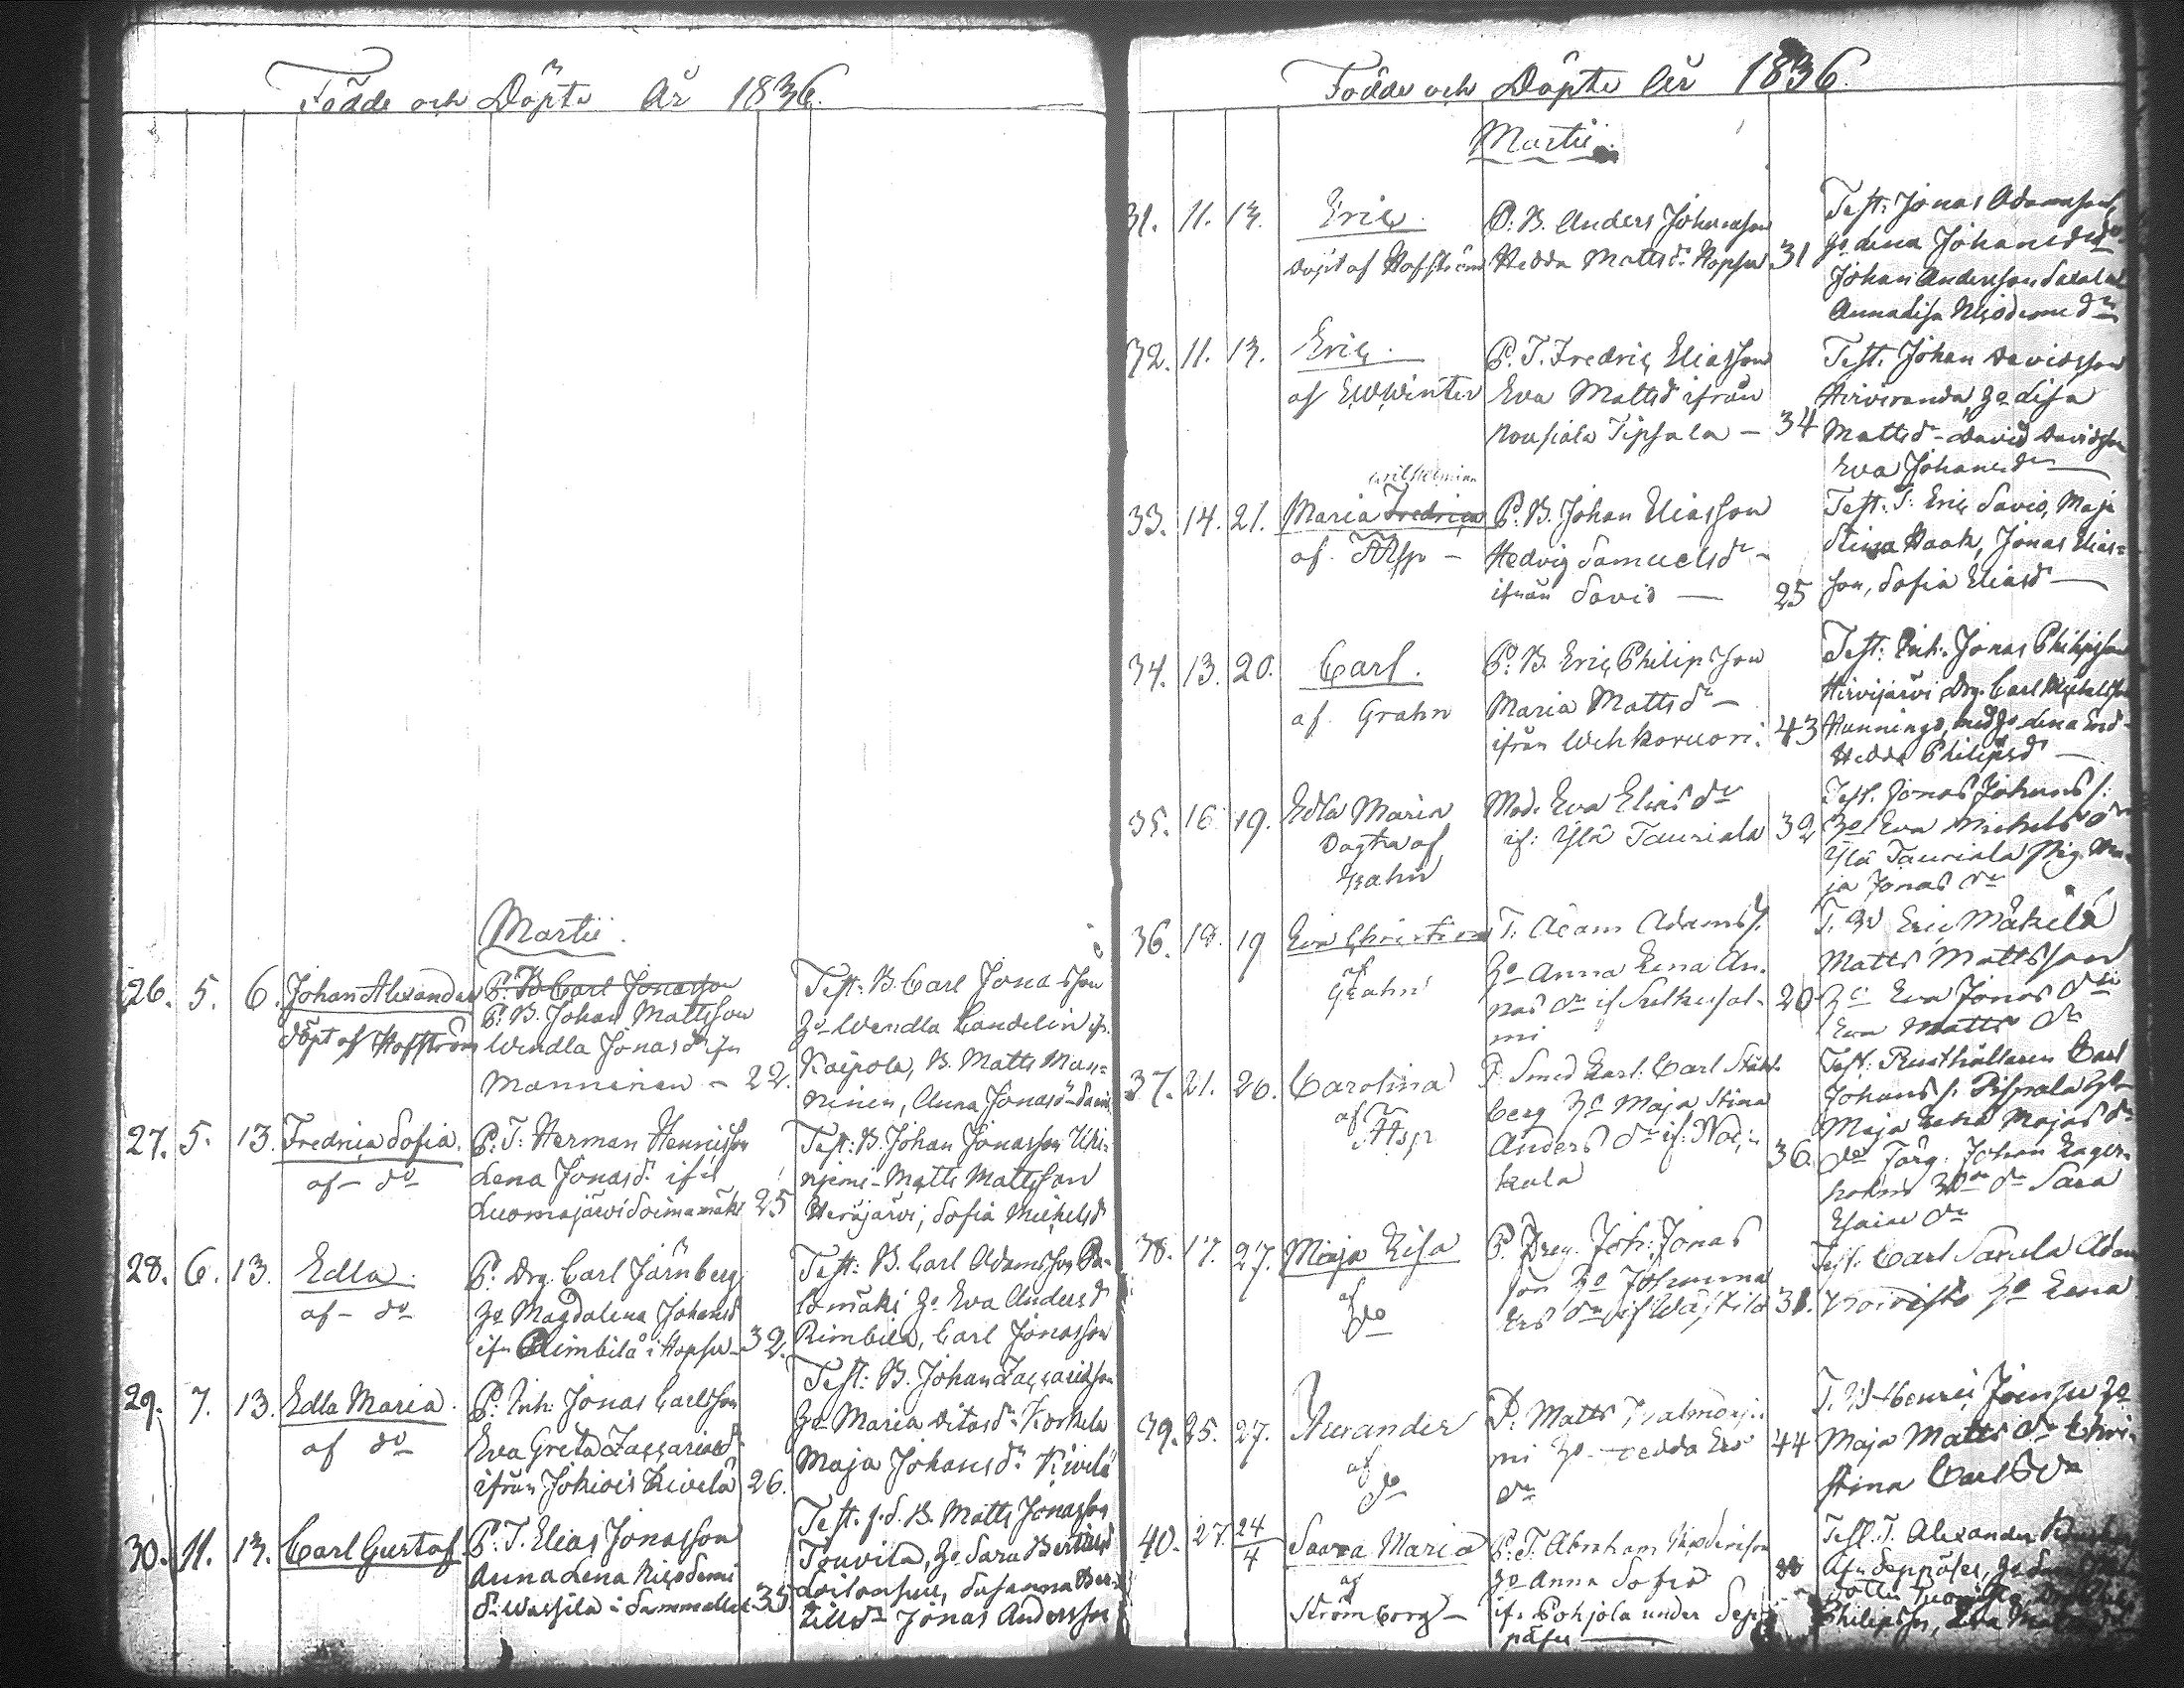 Födde och Döpte År 1836.
Martii.
26. 5. 6. Johan Alexander
döpt af Hofström
P: B. Carl Jonasson
P: B. Johan Mattsson
Wendla Jonasdr ifn
Manninen - 22.
Test: B. Carl Jonasson
Ho Wendla Candelin ifn
Kaipola, B. Matts Man=
ninen, Anna Jonasdr
27. 5. 13. Fredrica Sofia.
af - do
P: T: Herman Henricsson
Lena Jonasd. ifn
Luomajärvi Soinamäki 25
Test: B. Johan Jonasson
Matts Mattsson
Heräjärvi, Sofia Michelsd
28. 6. 13. Edla.
af - do
P: Drg. Carl Järnberg
Ho Magdalena Johansd
ifn Rimbilä i Hopsu - 32.
Test: B. Carl Adamsson Pa-
lomäki Ho Eva Andersd
Rimbilä, Carl Jonasson
29. 7. 13. Edla Maria.
af do
P: Inh: Jonas Carlsson
Eva Greta Zacsariasd.
ifrån Jokiois Kivelä 26.
Test: B. Johan Zacsariasson
Ho Maria Vitasdr Korkela
Maja Johansdr Kivelä
30. 11. 13. Carl Gustaf.
P: T. Elias Jonasson
Anna Lena Nicodemi
dr Wassila i Sammallus 35
Test. f.d. B. Matts Jonasson
Touvila, Ho Sara Bertilsd
Loilansuu, Susanna Ber-
tillsdr Jonas Andersson
Födde och Döpte År 1836.
Martii.
31. 11. 13. Eric.
döpt af Hofström
P: B. Anders Johansson
Hedda Mattsdr Hopsu 31
Test: Jonas Adamsson,
Ho Lena Johansdr
Johan Andersson
Anna Lisa Nicodemidr
32. 11. 13. Eric.
af EWWinter
P: T. Fredric Eliasson
Eva Mattsd ifrån
Nousiala Tipsala - 34
Test. Johan Davidsson
Hirviranda, Ho Lisa
Mattsdr - David Davidsson
Eva Johansdr
33. 14. 21. Maria Fredrica
Wilhelmina
af
P: B. Johan Eliasson
Hedvig Samuelsdr -
ifrån Savid - 25
Test. T: Eric Savid, Maja
Stina Haak, Jonas Elias=
son, Sofia Eliasd
34. 13. 20. Carl.
af Grahn
P: B. Eric Philipsson
Maria Mattsdr -
ifrån Wehkavuori. 43
Test: Inh. Jonas Philipsson
Hirvijärvi, Drg. Carl Michelsson
Hunnings, med Ho Lena Ersd -
Hedda Philipsd
35. 16. 19. Edla Maria
Dogtra af
Grahn
Mod. Eva Eliasdr
if: Ylä Tauriala 32
Test. Jonas Johans s.
Ho Eva Michelsdr
Ylä Tauriala Pig. Ma-
ja Jonasdr
36. 18. 19 Eva Christina
af
Grahn
T. Adam Adams s.
Ho Anna Lena An-
nasdr if Sulkusal- 20
mi
T. Bd Eric Mäkelä
Matts Mattsson
Ho Eva Jonasdr
Eva Mattsdr
37. 21. 26. Carolina
af
P. Smed Karl. Carl Ståhl-
berg Ho Maja Stina
Andersdr if: 36.
kala
Test: Rusthållaren Carl
Johans s. Pispala Ho
Maja Lena
Färg. Johan Lager-
holm
dr Sara
Esaiaedr
38. 17. 27. Maja Lisa
af
do
P. Drg. Joh: Jonas
son Ho Johanna
Ersdr if Wästilä 31.
Test. Carl Sarvela Adam
Koivisto Ho Lena
39. 25. 27. Newander
af
do
P: Matts
mi Ho Hedda Ers 44
dr
T. Bd Henric Joensuu Ho
Maja Mattsdr Chri-
stina Carlsdr
40. 27. 24/4 Saara Maria
af
Strömborg -
P: T. Abraham Nicodemisson
Ho Anna Sofia
ifn Pohjola under Sep-
päsen
Test. T. Alexander
Afn Seppäsen, Ho
Philipsson, Lena